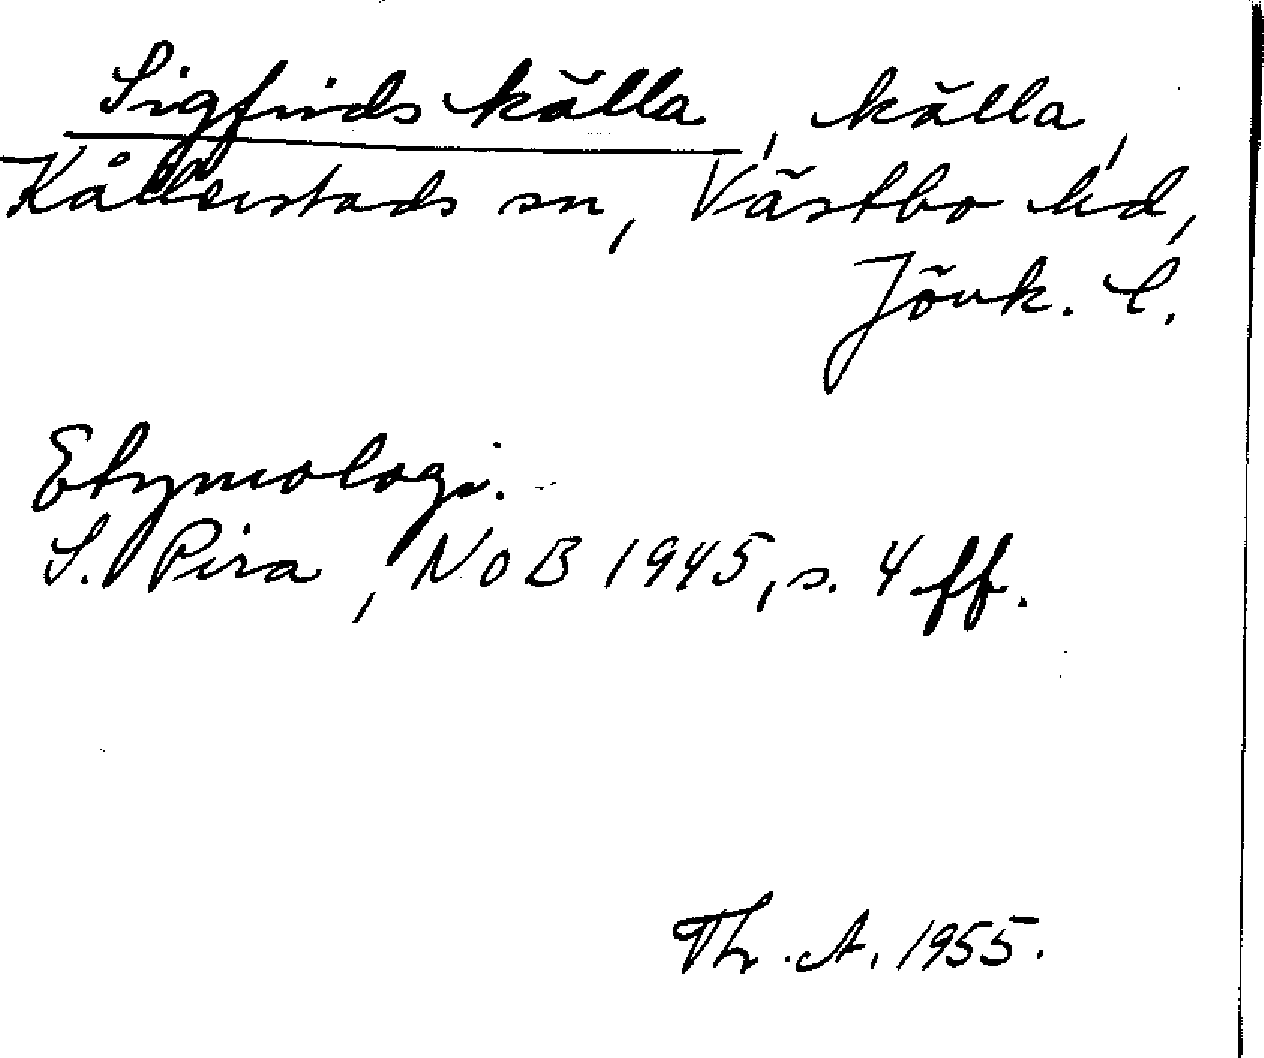 Sigfrids källa, källa,
Kållerstads sn, Västbo hd,
Jönk. l.
Etymologi.
S. Pira, NoB 1945, s. 4 ff.
Th. A. 1955.